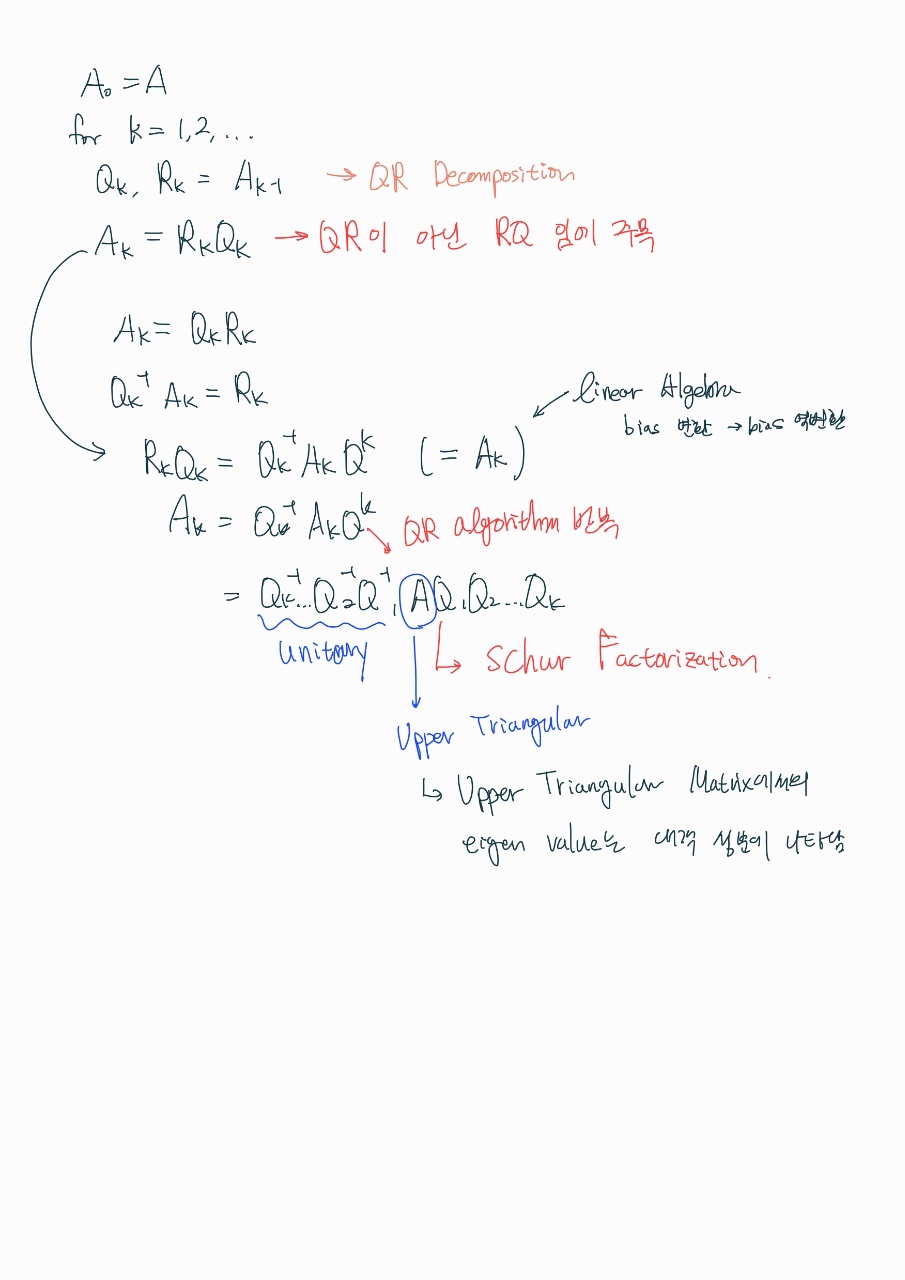 A₀ = A
for k = 1, 2, ...
Qk, Rk = Ak-1 → QR Decomposition
Ak = RkQk → QR이 아닌 RQ 임에 주목
Ak = QkRk
Qk⁻¹ Ak = Rk
linear Algebra
bias 변환 → bias 역변환
RkQk = Qk⁻¹ Ak Qk (= Ak)
Ak = Qk⁻¹ Ak Qk
QR algorithm 반복
= Qk⁻¹ ... Q₂⁻¹ Q₁⁻¹ A Q₁ Q₂ ... Qk
unitary
Schur Factorization.
Upper Triangular
Upper Triangular Matrix에서의
eigen value는 대각 성분에 나타남